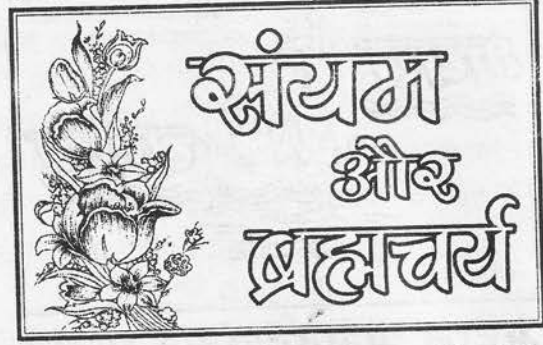 संयम
और
ब्रह्मचर्य